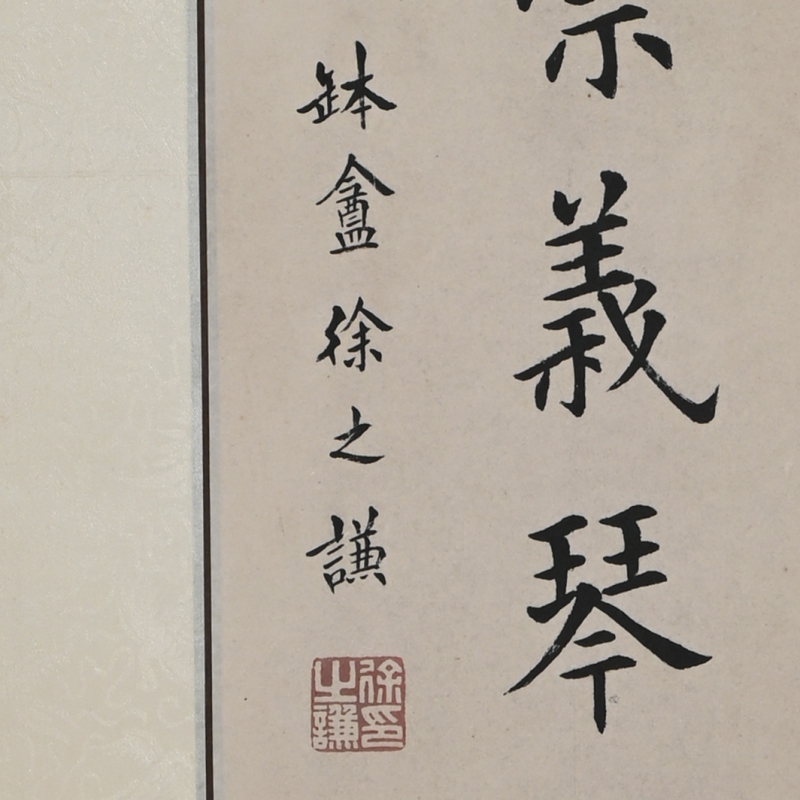 義琴
缽盦徐之謙
徐印
之謙